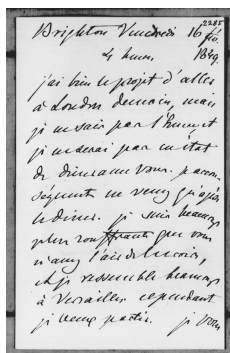 2285
Brighton Vendredi 16 fév.
4 heures 1849.
j'ai bien le projet d'aller
à Londres demain, mais
je ne sais pas l'heure et
je ne serai pas en état
de dîner avec vous. par con-
séquent ne venez qu'après
le dîner. je suis beaucoup
plus souffrante que vous
n'avez l'air de le croire,
et je ressemble beaucoup
à Versailles. cependant
je veux partir. je vous